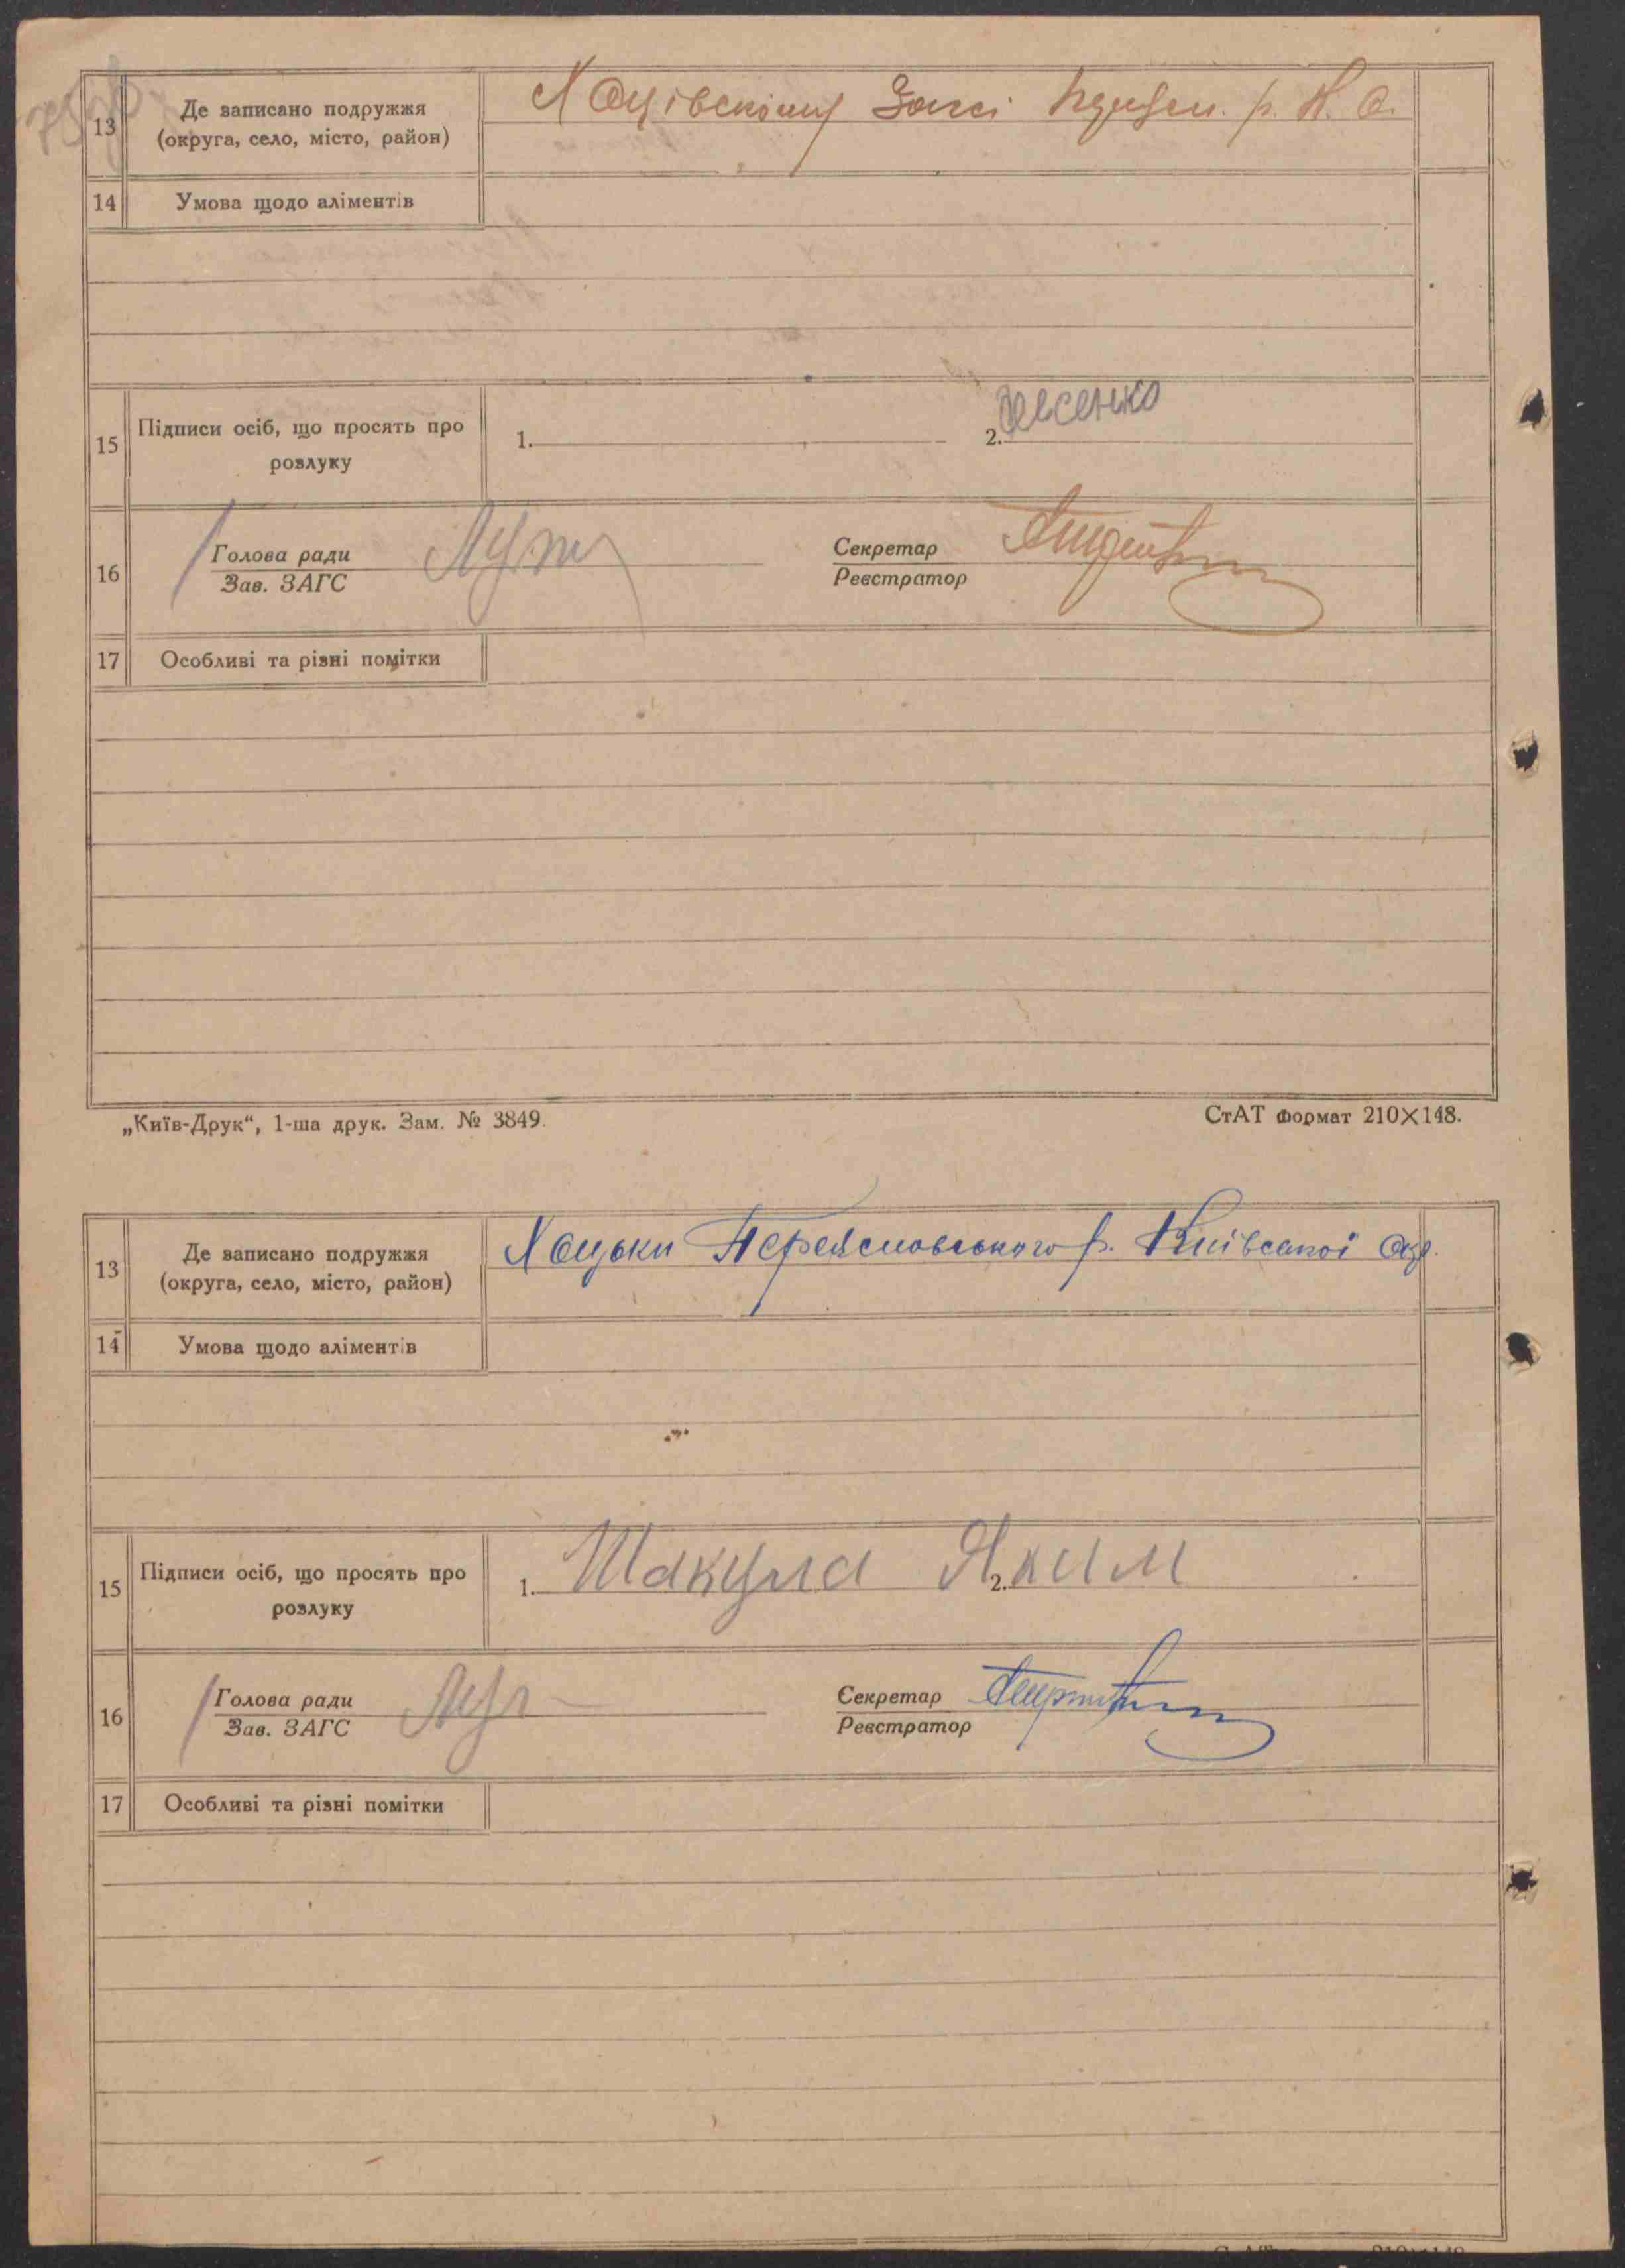 13 Де записано подружжя
(округа, село, місто, район)
Хоцівскому Загсі р. К. О.
14 Умова щодо аліментів
15 Підписи осіб, що просять про
розлуку
1. 2.
16 Голова ради
Зав. ЗАГС
Секретар
Реєстратор
17 Особливі та різні помітки
„Київ-Друк“, 1-ша друк. Зам. № 3849.
СтАТ формат 210×148.
13 Де записано подружжя
(округа, село, місто, район)
Хоцьки Переясловського р. Київської окр.
14 Умова щодо аліментів
15 Підписи осіб, що просять про
розлуку
1. Шакула Яким 2.
16 Голова ради
Зав. ЗАГС
Секретар
Реєстратор
17 Особливі та різні помітки